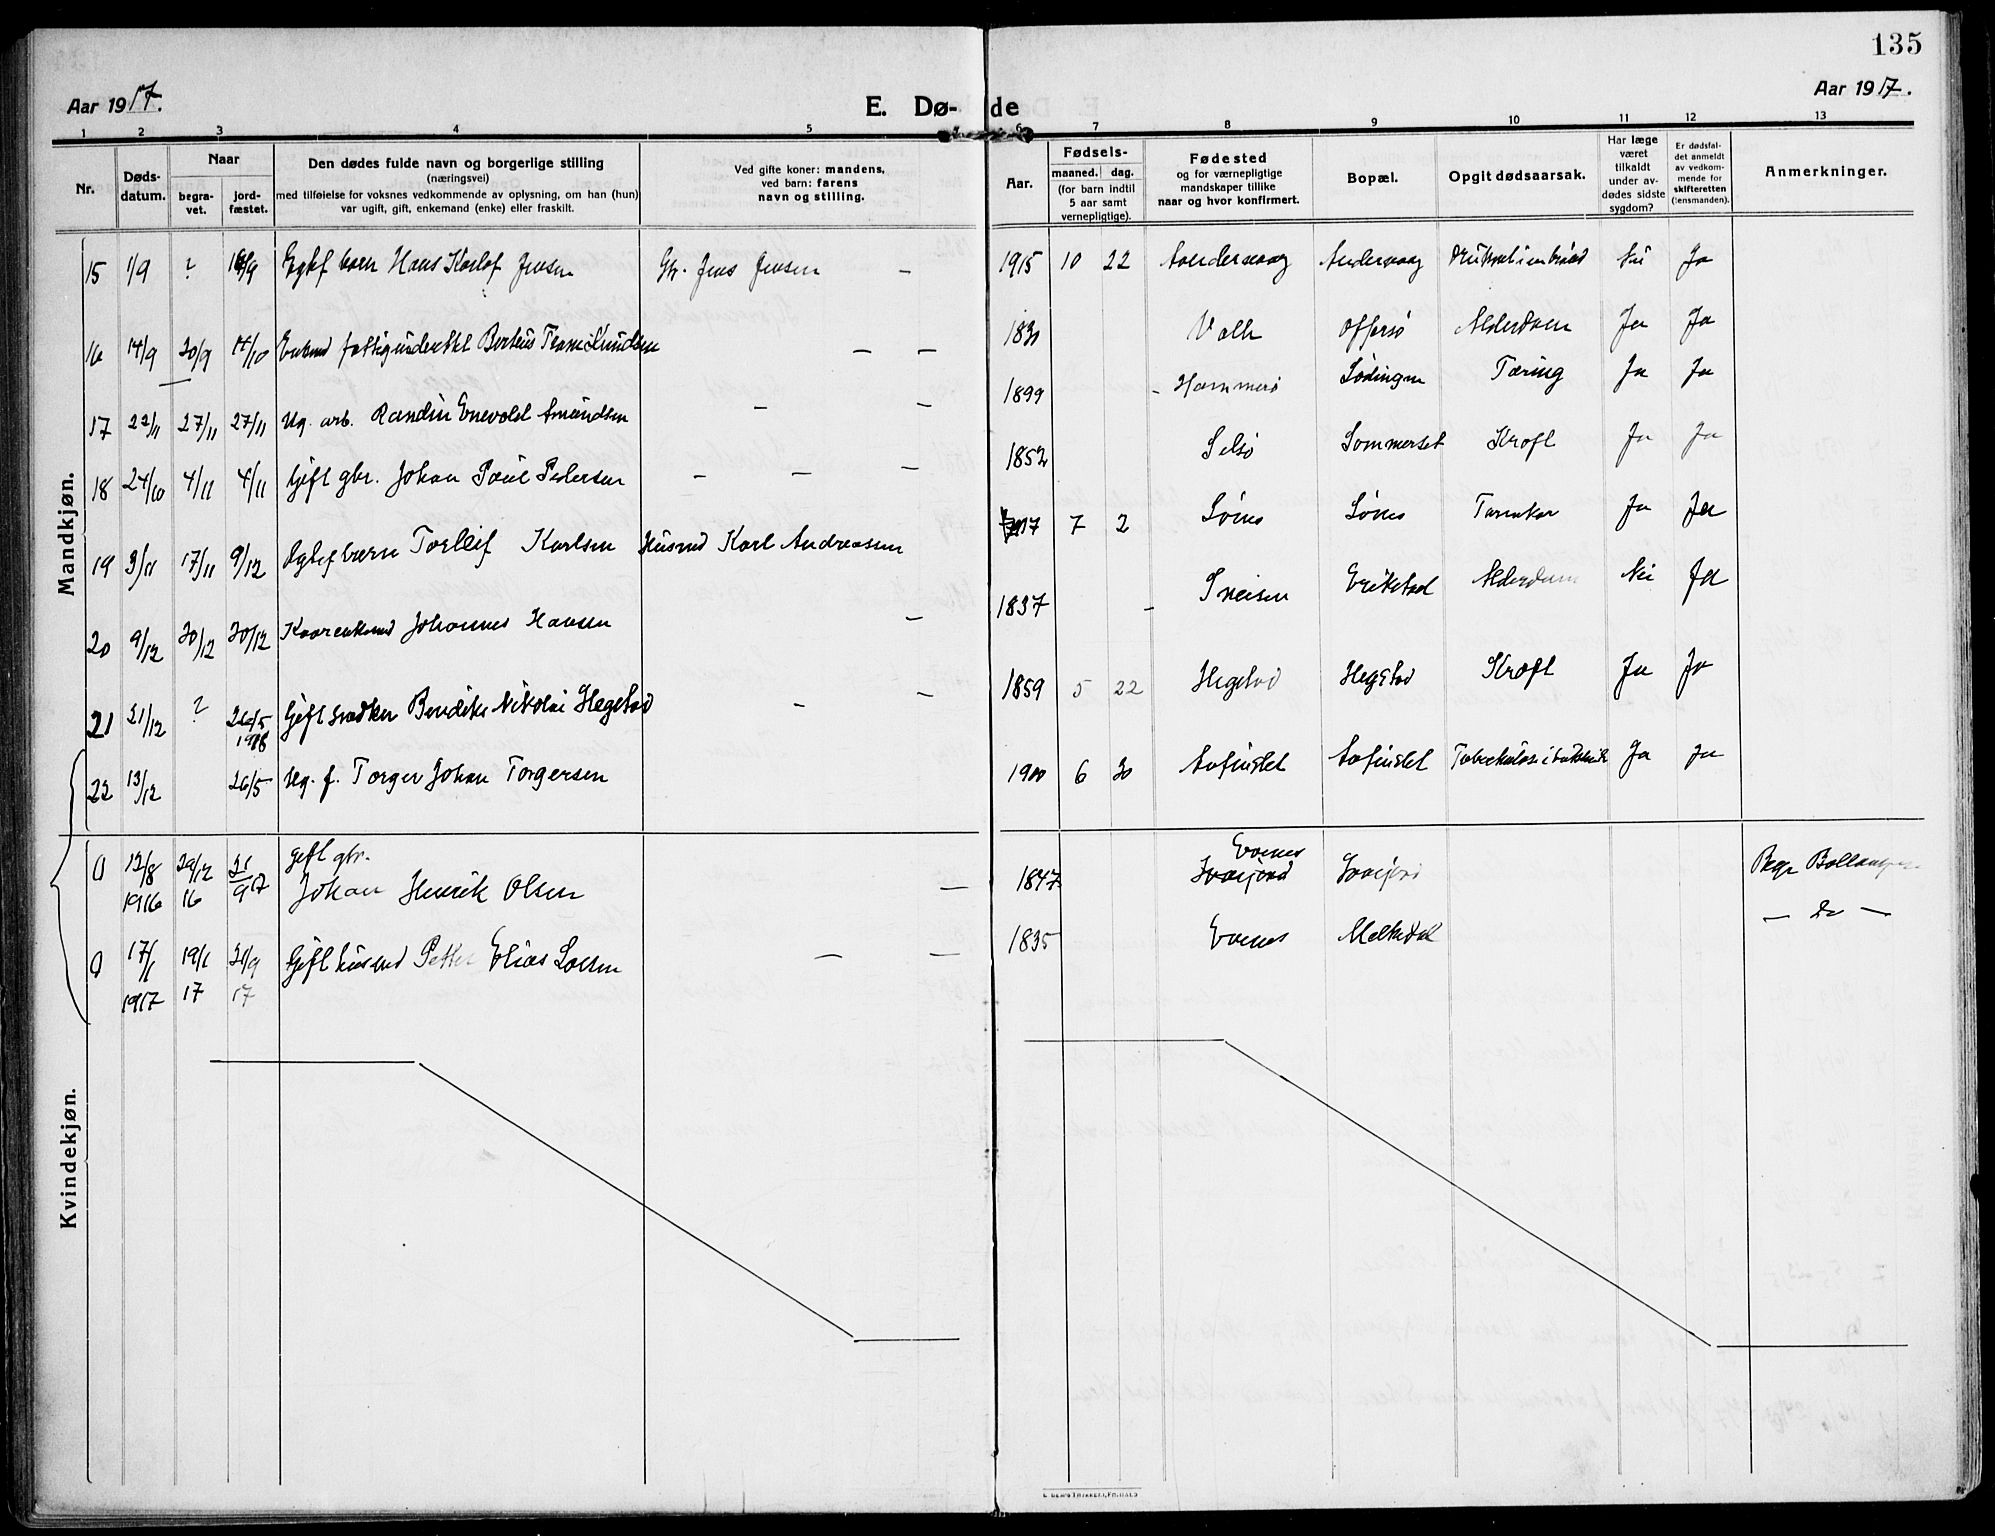 135
Aar 1917.
E. Dø-
de
Aar 1917.
1 2 3 4 5 6 7 8 9 10 11 12 13
Nr.
Døds-
datum.
Naar
begra-
vet.
jord-
fæstet.
Den dødes fulde navn og borgerlige stilling
(næringsvei)
med tilføielse for voksnes vedkommende av oplysning, om han (hun)
var ugift, gift, enkemand (enke) eller fraskilt.
Ved gifte koner: mandens,
ved barn: farens
navn og stilling.
Aar.
Fødsels-
maaned. dag.
(for barn indtil
5 aar samt
vernepligtige).
Fødested
og for værnepligtige
mandskaper tillike
naar og hvor konfirmert.
Bopæl.
Opgit dødsaarsak.
Har læge
været
tilkaldt
under av-
dødes sidste
sygdom?
Er dødsfal-
det anmeldt
av vedkom-
mende for
skifteretten
(lensmanden).
Anmerkninger.
Mandkjøn.
15 1/9 ? 16/9 Egtef barn Hans Karlof Jensen Gbr. Jens Jensen — 1915 10 22 Aandervaag Andervaag Nei Ja
16 14/9 20/9 14/10 Enkmd fattigunderst Berteus Knudsen — — Valle Offersø Alderdom Ja Ja
17 22/11 27/11 27/11 Ug. arb. Randin Enevold Amundsen — — 1899 Hammerø Lødingen Tæring Ja Ja
18 24/10 4/11 4/11 Gift gbr. Johan Paul Pedersen — — — 1852 Selsø Sommerset Kræft Ja Ja
19 3/11 17/11 9/12 Egtef barn Torleif Karlsen Husmd Karl Andreassen 1917 7 2 Ja Ja
20 9/12 30/12 30/12 Kaarenkemd Johannes Hansen — 1837 Sneisen Erikstad Alderdom Nei Ja
21 21/12 ? 26/5 1918 Gift snedker Bendiks Nikolai Hegstad — — 1859 5 22 Hegstad Hegstad Kræft Ja Ja
22 13/12 26/5 Ug. f. Torger Johan Torgersen 1900 6 30 Aufinslet Aufinslet Ja Ja
0 12/8 1916 29/12 16 21/9 17 gift gbr. Johan Henrik Olsen — 1847 Evenes Begr Ballangen
0 17/1 1917 19/1 17 21/9 17 Gift husmd Petter Elias Larsen — — 1835 Evenes Melkedal — Do —
Kvindekjøn.